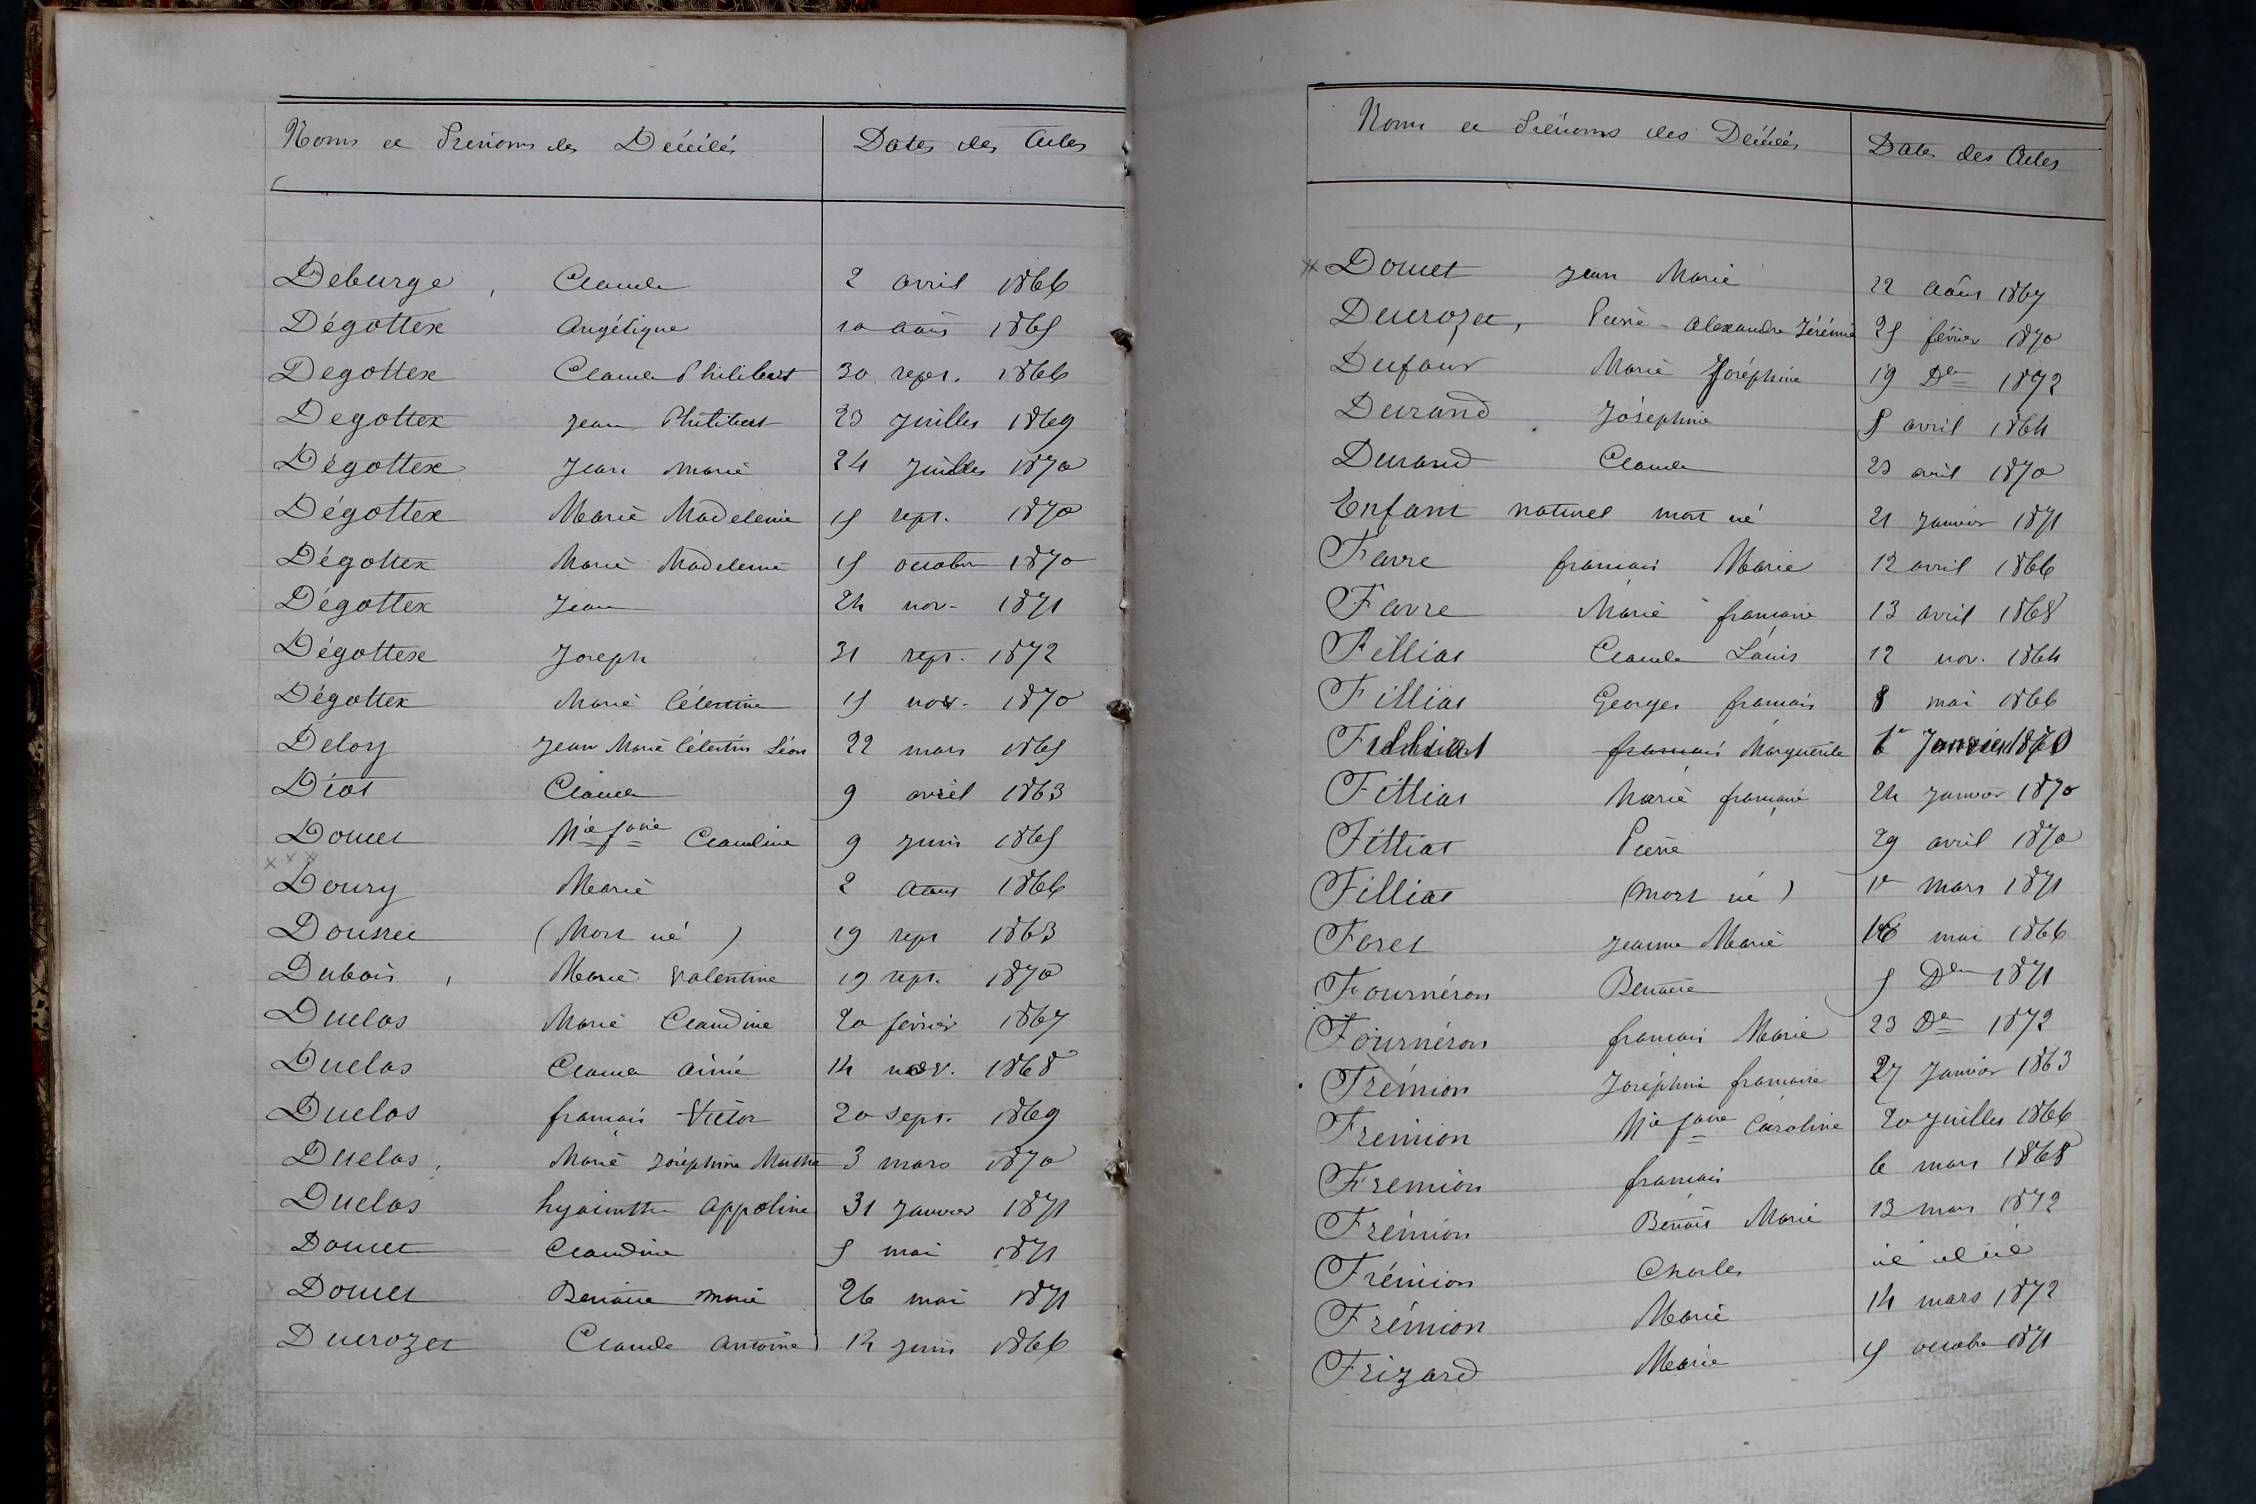 Noms et Prénoms des Décédés Dates des Actes
Deburge, Claude 2 avril 1866
Dégottex Angélique 10 août 1865
Degottex Claude Philibert 30 sept. 1866
Degottex Jean Philibert 23 Juillet 1869
Dégottex Jean Marie 24 Juillet 1870
Dégottex Marie Madeleine 15 sept. 1870
Dégottex Marie Madeleine 15 octobre 1870
Dégottex Jean 24 nov. 1871
Dégottex Joseph 31 sept. 1872
Dégottex Marie Célestine 15 nov. 1870
Deloy Jean Marie Célestin Léon 22 mars 1865
Diot Claude 9 avril 1863
Doucet Mie fcoise Claudine 9 Juin 1865
Doury Marie 2 août 1866
(Mort né) 19 sept 1863
Dubois, Marie Valentine 19 sept. 1870
Duclos Marie Claudine 20 février 1867
Duclos Claude Aimé 14 nov. 1868
Duclos français Victor 20 sept. 1869
Duclos, Marie Joséphine Marthe 3 mars 1870
Duclos hyacinthe appoline 31 Janvier 1871
Doucet Claudine 5 mai 1871
Doucet Benoite Marie 26 mai 1871
Ducrozet Claude Antoine 14 Juin 1866
Noms et Prénoms des Décédés Dates des Actes
Doucet Jean Marie 22 août 1867
Ducrozet, Pierre-Alexandre Jérémie 25 février 1870
Dufour Marie Joséphine 19 Dbre 1872
Durand Joséphine 5 avril 1864
Durand Claude 23 avril 1870
Enfant naturel mort né 21 Janvier 1871
Favre françois Marie 12 avril 1866
Favre Marie françoise 13 avril 1868
Filliat Claude Louis 12 nov. 1864
Filliat Georges françois 8 mai 1866
Filliat françois Marguerite 1er Janvier 1870
Filliat Marie françoise 24 Janvier 1870
Filliat Pierre 29 avril 1870
Filliat (mort né) 1er mars 1871
Foret Jeanne Marie 16 mai 1866
Fournéron Benoite 5 Dbre 1871
Fournéron françois Marie 23 Dbre 1872
Frémion Joséphine françoise 27 Janvier 1863
Fremion Mie fcoise Caroline 20 Juillet 1866
Fremion françois 6 mars 1868
Frémion Benoît Marie 13 mars 1872
Frémion Charles
Frémion Marie 14 mars 1872
Frizard Marie 15 octobre 1871